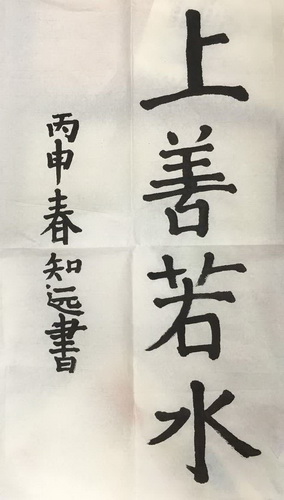 上善若水
丙申春知远書